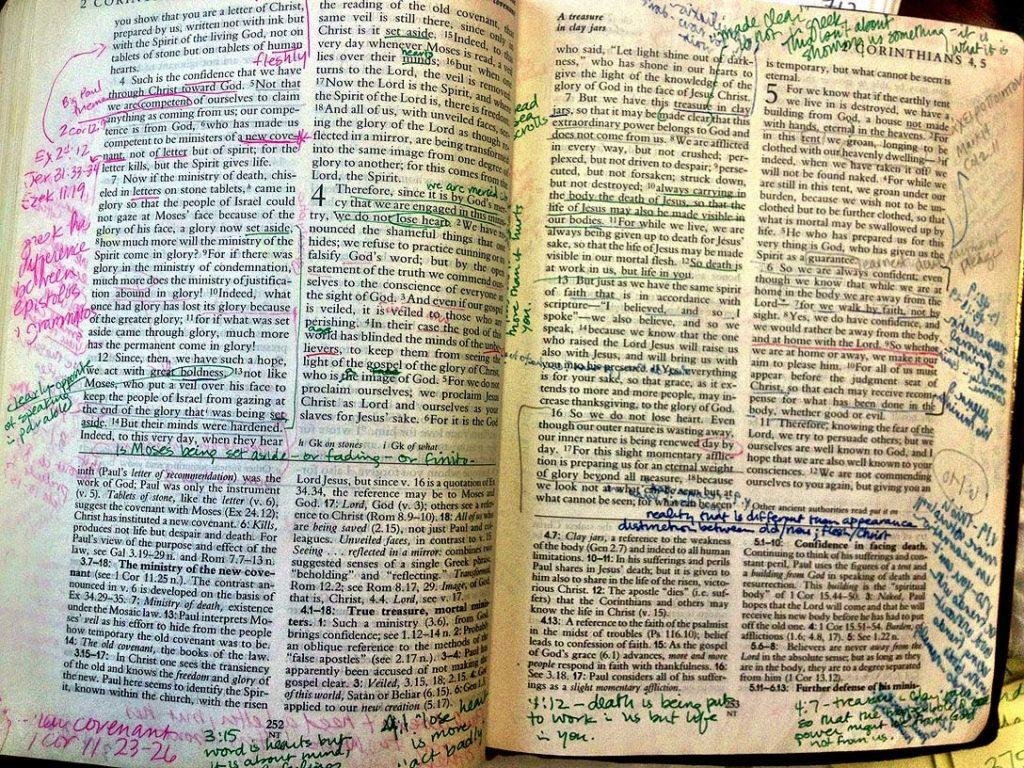 2 CORINTHIANS
you show that you are a letter of Christ,
prepared by us, written not with ink but
with the Spirit of the living God, not on
tablets of stone but on tablets of human
hearts.
fleshly
4 Such is the confidence that we have
through Christ toward God. 5Not that
we are competent of ourselves to claim
anything as coming from us; our compe-
tence is from God, 6who has made us
competent to be ministers of a new cove-
nant, not of letter but of spirit; for the
letter kills, but the Spirit gives life.
7 Now if the ministry of death, chis-
eled in letters on stone tablets, came in
glory so that the people of Israel could
not gaze at Moses' face because of the
glory of his face, a glory now set aside,
8how much more will the ministry of the
Spirit come in glory? 9For if there was
glory in the ministry of condemnation,
much more does the ministry of justifica-
tion abound in glory! 10Indeed, what
once had glory has lost its glory because
of the greater glory; 11for if what was set
aside came through glory, much more
has the permanent come in glory!
12 Since, then, we have such a hope,
we act with great boldness, 13not like
Moses, who put a veil over his face to
keep the people of Israel from gazing at
the end of the glory that was being set
aside. 14But their minds were hardened.
Indeed, to this very day, when they hear
the reading of the old covenant,
same veil is still there, since only in
Christ is it set aside. 15Indeed, to this
very day whenever Moses is read, a veil
lies over their minds; 16but when one
turns to the Lord, the veil is removed.
17Now the Lord is the Spirit, and where
the Spirit of the Lord is, there is freedom.
18And all of us, with unveiled faces, seeing
the glory of the Lord as though re-
flected in a mirror, are being transformed
into the same image from one degree of
glory to another; for this comes from the
Lord, the Spirit.
4 Therefore, since it is by God's mer-
cy that we are engaged in this minis-
try, we do not lose heart. 2We have re-
nounced the shameful things that one
hides; we refuse to practice cunning or to
falsify God's word; but by the open
statement of the truth we commend our-
selves to the conscience of everyone in
the sight of God. 3And even if our gospel
is veiled, it is veiled to those who are
perishing. 4In their case the god of this
world has blinded the minds of the unbe-
lievers, to keep them from seeing the
light of the gospel of the glory of Christ,
who is the image of God. 5For we do not
proclaim ourselves; we proclaim Jesus
Christ as Lord and ourselves as your
slaves for Jesus' sake. 6For it is the God
h Gk on stones   i Gk of what
is Moses being set aside - or fading - or finito -
By Paul
2 Cor 12
Ex 24:12
Jer 31:33-34
Ezek 11:19
greek he
difference
between
Epistolos
clearly
of speaking
in parable
inth (Paul's letter of recommendation) was the
work of God; Paul was only the instrument
(v. 5). Tablets of stone, like the letter (v. 6),
suggest the covenant with Moses (Ex 24.12);
Christ has instituted a new covenant. 6: Kills,
produces not life but despair and death. For
Paul's view of the purpose and effect of the
law, see Gal 3.19–29 n. and Rom 7.7–13 n.
3.7–18: The ministry of the new cove-
nant (see 1 Cor 11.25 n.). The contrast an-
nounced in v. 6 is developed on the basis of
Ex 34.29–35. 7: Ministry of death, existence
under the Mosaic law. 13: Paul interprets Mo-
ses' veil as his effort to hide from the people
how temporary the old covenant was to be.
14: The old covenant, the books of the law.
3.15–17: In Christ one sees the transiency
of the old and knows the freedom and glory of
the new. Paul here seems to identify the Spir-
it, known within the church, with the risen
Lord Jesus, but since v. 16 is a quotation of Ex
34.34, the reference may be to Moses and
God. 17: Lord, God (v. 3); others see a refer-
ence to Christ (Rom 8.9–10). 18: All of us who
are being saved (2.15), not just Paul and col-
leagues. Unveiled faces, in contrast to v. 15.
Seeing . . . reflected in a mirror: combines two
suggested senses of a single Greek phrase,
"beholding" and "reflecting." Transformed,
Rom 12.2; see Rom 8.17, 29. Image, of God,
that is, Christ, 4.4; Lord, see v. 17.
4.1–18: True treasure, mortal minis-
ters. 1: Such a ministry (3.6), from God,
brings confidence; see 1.12–14 n. 2: Probably
an oblique reference to the methods of the
"false apostles" (see 2.17 n.). 3–4: Paul had
apparently been accused of not making the
gospel clear. 3: Veiled, 3.15, 18; 2.15. 4: God
of this world, Satan or Beliar (6.15). 6: Gen 1.3
applied to our new creation (5.17).
252
NT
new covenant
1 Cor 11:23-26
3:15
word is hearts but
it is about mind,
4:1 lose heart
is more
"act badly"
made clear
CORINTHIANS 4, 5
A treasure
in clay jars
who said, "Let light shine out of dark-
ness," who has shone in our hearts to
give the light of the knowledge of the
glory of God in the face of Jesus Christ.
7 But we have this treasure in clay
jars, so that it may be made clear that this
extraordinary power belongs to God and
does not come from us. 8We are afflicted
in every way, but not crushed; per-
plexed, but not driven to despair; 9perse-
cuted, but not forsaken; struck down,
but not destroyed; 10always carrying in
the body the death of Jesus, so that the
life of Jesus may also be made visible in
our bodies. 11For while we live, we are
always being given up to death for Jesus'
sake, so that the life of Jesus may be made
visible in our mortal flesh. 12So death is
at work in us, but life in you.
13 But just as we have the same spirit
of faith that is in accordance with
scripture—"I believed, and so I
spoke"—we also believe, and so we
speak, 14because we know that the one
who raised the Lord Jesus will raise us
also with Jesus, and will bring us with
you into his presence. 15Yes, everything
is for your sake, so that grace, as it ex-
tends to more and more people, may in-
crease thanksgiving, to the glory of God.
16 So we do not lose heart. Even
though our outer nature is wasting away,
our inner nature is being renewed day by
day. 17For this slight momentary afflic-
tion is preparing us for an eternal weight
of glory beyond all measure, 18because
we look not at what can be seen but at
what cannot be seen; for what can be seen
is temporary, but what cannot be seen is
eternal.
5 For we know that if the earthly tent
we live in is destroyed, we have a
building from God, a house not made
with hands, eternal in the heavens. 2For
in this tent we groan, longing to be
clothed with our heavenly dwelling— 3if
indeed, when we have taken it off we
will not be found naked. 4For while we
are still in this tent, we groan under our
burden, because we wish not to be un-
clothed but to be further clothed, so that
what is mortal may be swallowed up by
life. 5He who has prepared us for this
very thing is God, who has given us the
Spirit as a guarantee.
6 So we are always confident; even
though we know that while we are at
home in the body we are away from the
Lord— 7for we walk by faith, not by
sight. 8Yes, we do have confidence, and
we would rather be away from the body
and at home with the Lord. 9So whether
we are at home or away, we make it our
aim to please him. 10For all of us must
appear before the judgment seat of
Christ, so that each may receive recom-
pense for what has been done in the
body, whether good or evil.
11 Therefore, knowing the fear of the
Lord, we try to persuade others; but we
ourselves are well known to God, and I
hope that we are also well known to your
consciences. 12We are not commending
ourselves to you again, but giving you an
Other ancient authorities read put it on
reality that is different than appearance
distinction between old/new, flesh/Christ
4.7: Clay jars, a reference to the weakness
of the body (Gen 2.7) and indeed to all human
limitations. 10–11: In his sufferings and perils
Paul shares in Jesus' death; but it is given to
him also to share in the life of the risen, victo-
rious Christ. 12: The apostle "dies" (i.e. suf-
fers) that the Corinthians and others may
know the life in Christ (v. 15).
4.13: A reference to the faith of the psalmist
in the midst of troubles (Ps 116.10); belief
leads to confession of faith. 15: As the gospel
of God's grace (6.1) advances, more and more
people respond in faith with thankfulness. 16:
See 3.18. 17: Paul considers all of his suffer-
ings as a slight momentary affliction.
5.1–10: Confidence in facing death.
Continuing to think of his sufferings and con-
stant peril, Paul uses the figures of a tent and
a building from God in speaking of death and
resurrection. This building is the "spiritual
body" of 1 Cor 15.44–50. 3: Naked, Paul
hopes that the Lord will come and that he will
receive his new body before he has had to put
off the old one. 4: 1 Cor 15.51–54. Burden,
afflictions (1.6; 4.8, 17). 5: See 1.22 n.
5.6–8: Believers are never away from the
Lord in the absolute sense; but as long as they
are in the body, they are to a degree separated
from him (1 Cor 13.12).
5.11–6.13: Further defense of his minis-
4:12 - death is being put
to work in us but life
in you.
4:7 - treasure
so that the
power might
not from us.